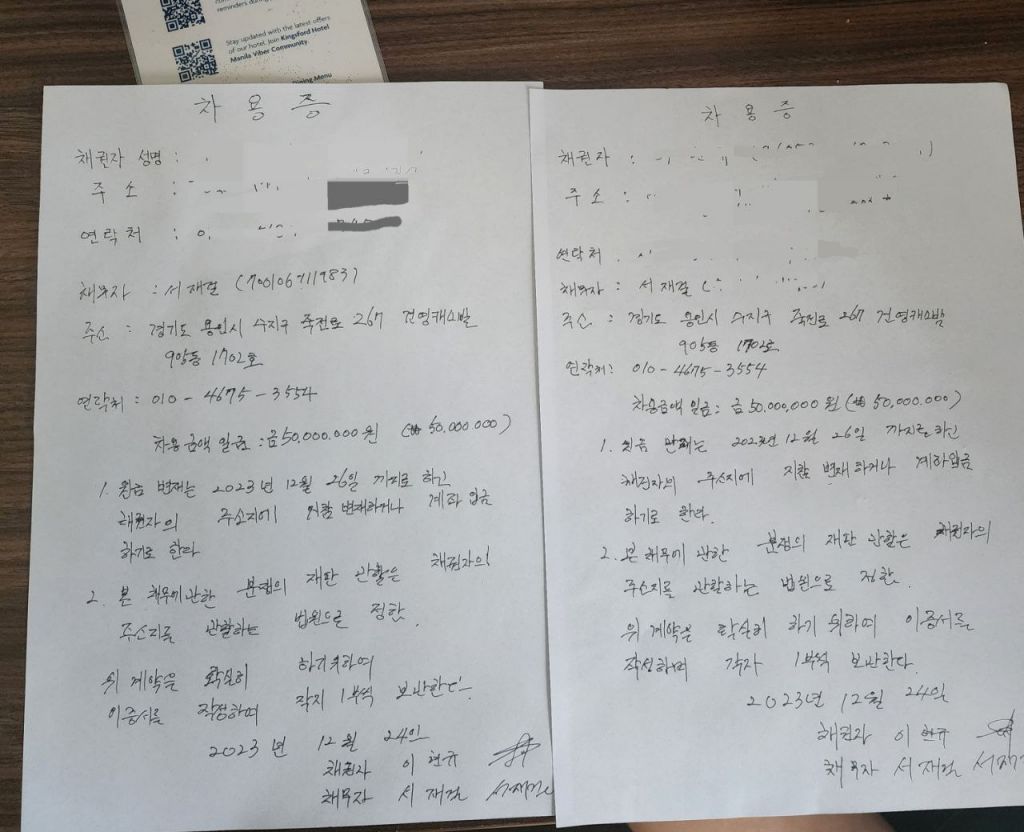 reminders during
Stay updated with the latest offers
of our hotel. Join Kingsford Hotel
Manila Viber Community
Dining Menu
차 용 증
채권자 성명 :
주 소 :
연락처 :
채무자 : 서 재결
주소 : 경기도 용인시 수지구 죽전로 267 건영캐스빌
1702호
연락처 : 010 - 4675 - 3554
차용금액 일금 : 금 50,000,000 원 (₩ 50,000,000)
1. 원금 변제는 2023년 12월 26일 까지로 하고
채권자의 주소지에 지참 변제하거나 계좌 입금
하기로 한다
2. 본 채무에 관한 분쟁의 재판 관할은 채권자의
주소지를 관할하는 법원으로 정함.
위 계약은 확실히 하기위하여
이증서를 작성하며 각자 1부씩 보관한다.
2023년 12월 24일
채권자 이 현규
채무자 서 재결
차 용 증
채권자 :
주 소 :
연락처 .
채무자 : 서 재결 (
주소 : 경기도 용인시 수지구 죽전로 267 건영캐스빌
1702호
연락처 : 010 - 4675 - 3554
차용금액 일금 : 금 50,000,000 원 (₩ 50,000,000)
1. 원금 변제는 2023년 12월 26일 까지로 하고
채권자의 주소지에 지참 변제하거나 계좌입금
하기로 한다.
2. 본 채무에 관한 분쟁의 재판 관할은 채권자의
주소지를 관할하는 법원으로 정함.
위 계약은 확실히 하기 위하여 이증서를
작성하며 각자 1부씩 보관한다.
2023년 12월 24일
채권자 이 현규
채무자 서 재결